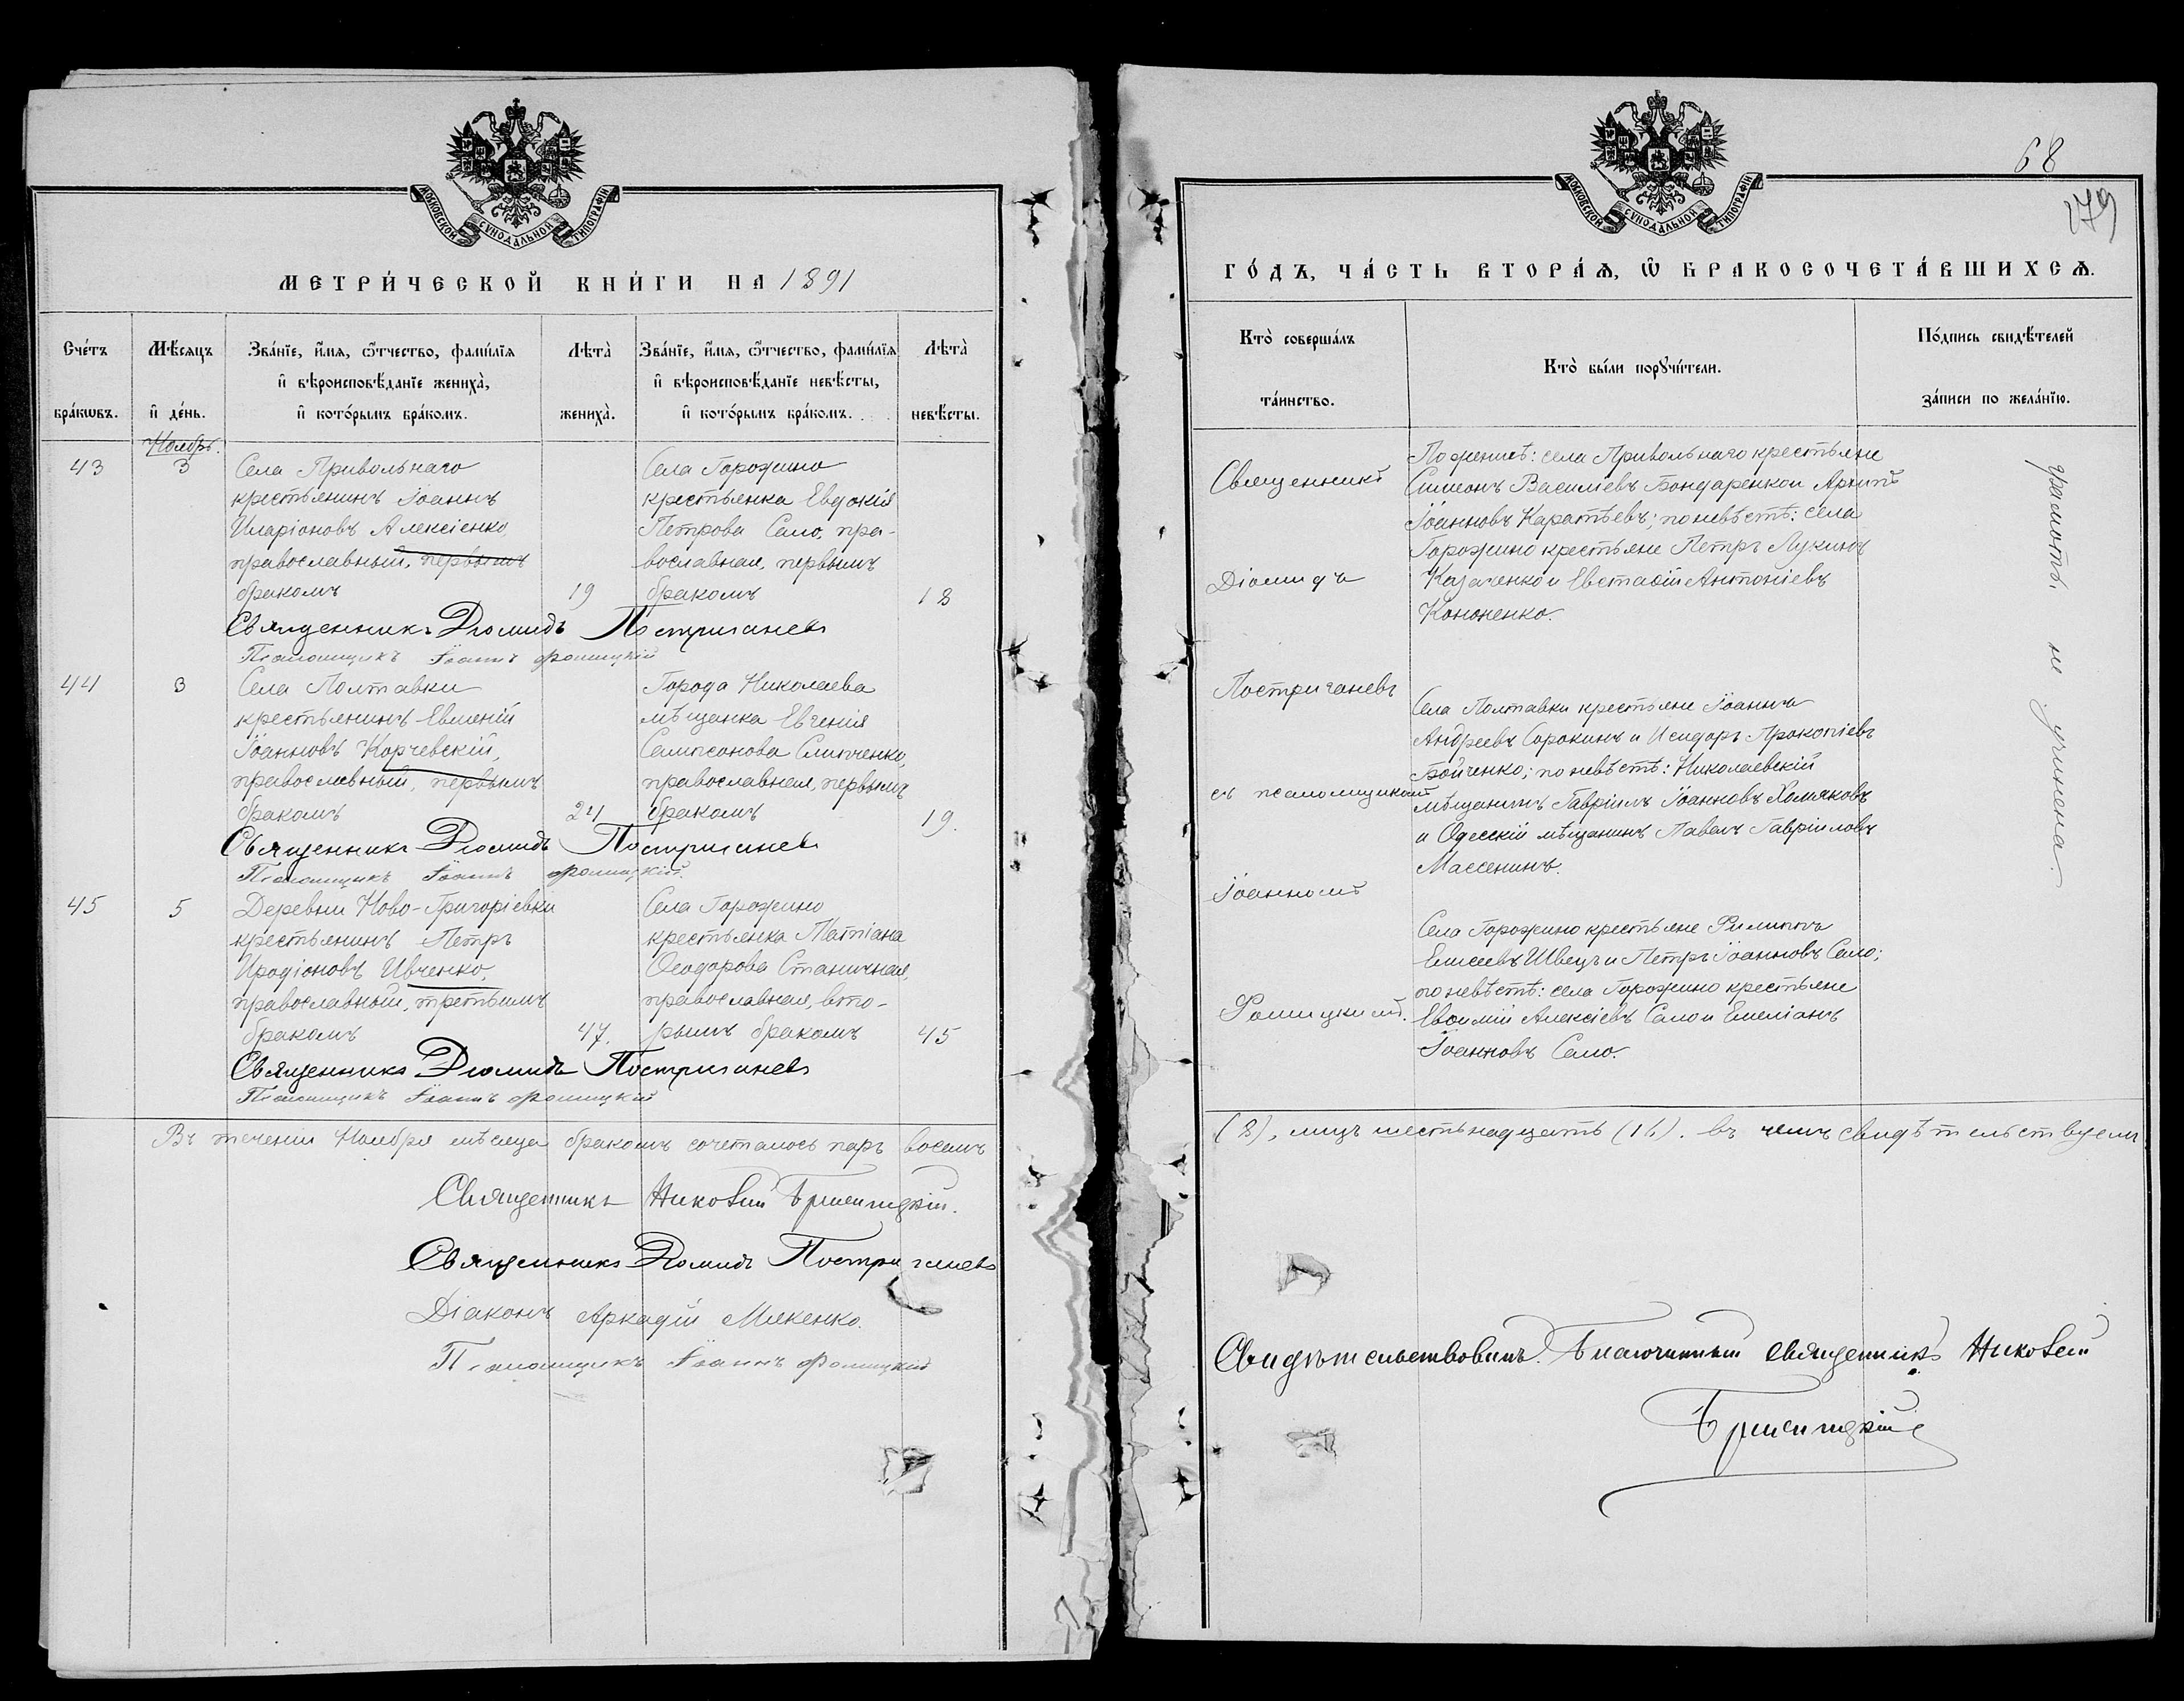 МОСКОВСКОЙ СѴНОДАЛЬНОЙ ТИПОГРАФІИ
МЕТРИ́ЧЕСКОЙ КНИ́ГИ НА 1891
Сче́тъ бра́кωвъ.
Мѣ́сяцъ и҆ де́нь.
Зва́нїе, и҆́мѧ, ѻ҆́тчество, фами́лїѧ
и҆ вѣроисповѣ́данїе жениха̀,
и҆ кото́рымъ бра́комъ.
Лѣта̀ жениха̀.
Зва́нїе, и҆́мѧ, ѻ҆́тчество, фами́лїѧ
и҆ вѣроисповѣ́данїе невѣ́сты,
и҆ кото́рымъ бра́комъ.
Лѣта̀ невѣ́сты.
Ноябрь.
43
3
Села Привольнаго
крестьянинъ Іоаннъ
Иларіоновъ Алексіенко,
православный, первымъ
бракомъ
19
Села Горожино
крестьянка Евдокія
Петрова Само, пра-
вославная, первымъ
бракомъ
18
Священникъ Діомидъ Постригачевъ
Псаломщикъ Іоаннъ Фомицкій
44
3
Села Полтавки
крестьянинъ Евменій
Іоанновъ Корчевскій,
православный, первымъ
бракомъ
24
Города Николаева
мѣщанка Евгенія
Сампсонова Слипченко,
православная, первымъ
бракомъ
19.
Священникъ Діомидъ Постригачевъ
Псаломщикъ Іоаннъ Фомицкій.
45
5
Деревни Ново-Григоріевки
крестьянинъ Петръ
Иродіоновъ Ивченко,
православный, третьимъ
бракомъ
47.
Села Горожино
крестьянка Татіана
Ѳеодорова Станичная,
православная, вто-
рымъ бракомъ
45
Священникъ Діомидъ Постригачевъ
Псаломщикъ Іоаннъ Фомицкій
Въ теченіи Ноября мѣсяца бракомъ сочеталось паръ восемь
Священникъ
Священникъ Діомидъ Постригачевъ
Діаконъ Аркадій Мякенко.
Псаломщикъ Іоаннъ Фомицкій
68
179
МОСКОВСКОЙ СѴНОДАЛЬНОЙ ТИПОГРАФІИ
ГО́ДЪ, ЧА́СТЬ ВТОРА́Ѧ, Ѽ БРАКОСОЧЕТА́ВШИХСѦ.
Кто̀ соверша́лъ та́инство.
Кто̀ бы́ли порꙋчи́тели.
По́дпись свидѣ́телей за́писи по жела́нїю.
Священникъ
Діомидъ
Постригачевъ
съ псаломщикомъ
Іоанномъ
Фомицкимъ.
По женихѣ: села Привольнаго крестьяне
Симеонъ Василіевъ Бондаренко и Архипъ
Іоанновъ Каратѣевъ; по невѣстѣ: села
Горожино крестьяне Петръ Лукинъ
Казаченко и Евстаѳій Антоніевъ
Кононенко.
Села Полтавки крестьяне Іоаннъ
Андреевъ Сорокинъ и Исидоръ Прокопіевъ
Бойченко; по невѣстѣ: Николаевскій
мѣщанинъ Гавріилъ Іоанновъ Хомяковъ
и Одесскій мѣщанинъ Павелъ Гавріиловъ
Массенинъ.
Села Горожино крестьяне Филиппъ
Елисеевъ Швецъ и Петръ Іоанновъ Само;
по невѣстѣ: села Горожино крестьяне
Евѳимій Алексіевъ Само и Емеліанъ
Іоанновъ Само.
грамотѣ не учинена.
(8), лицъ шестьнадцать (16). въ чемъ свидѣтельствуемъ
Свидѣтельствовалъ. Благочинный священникъ